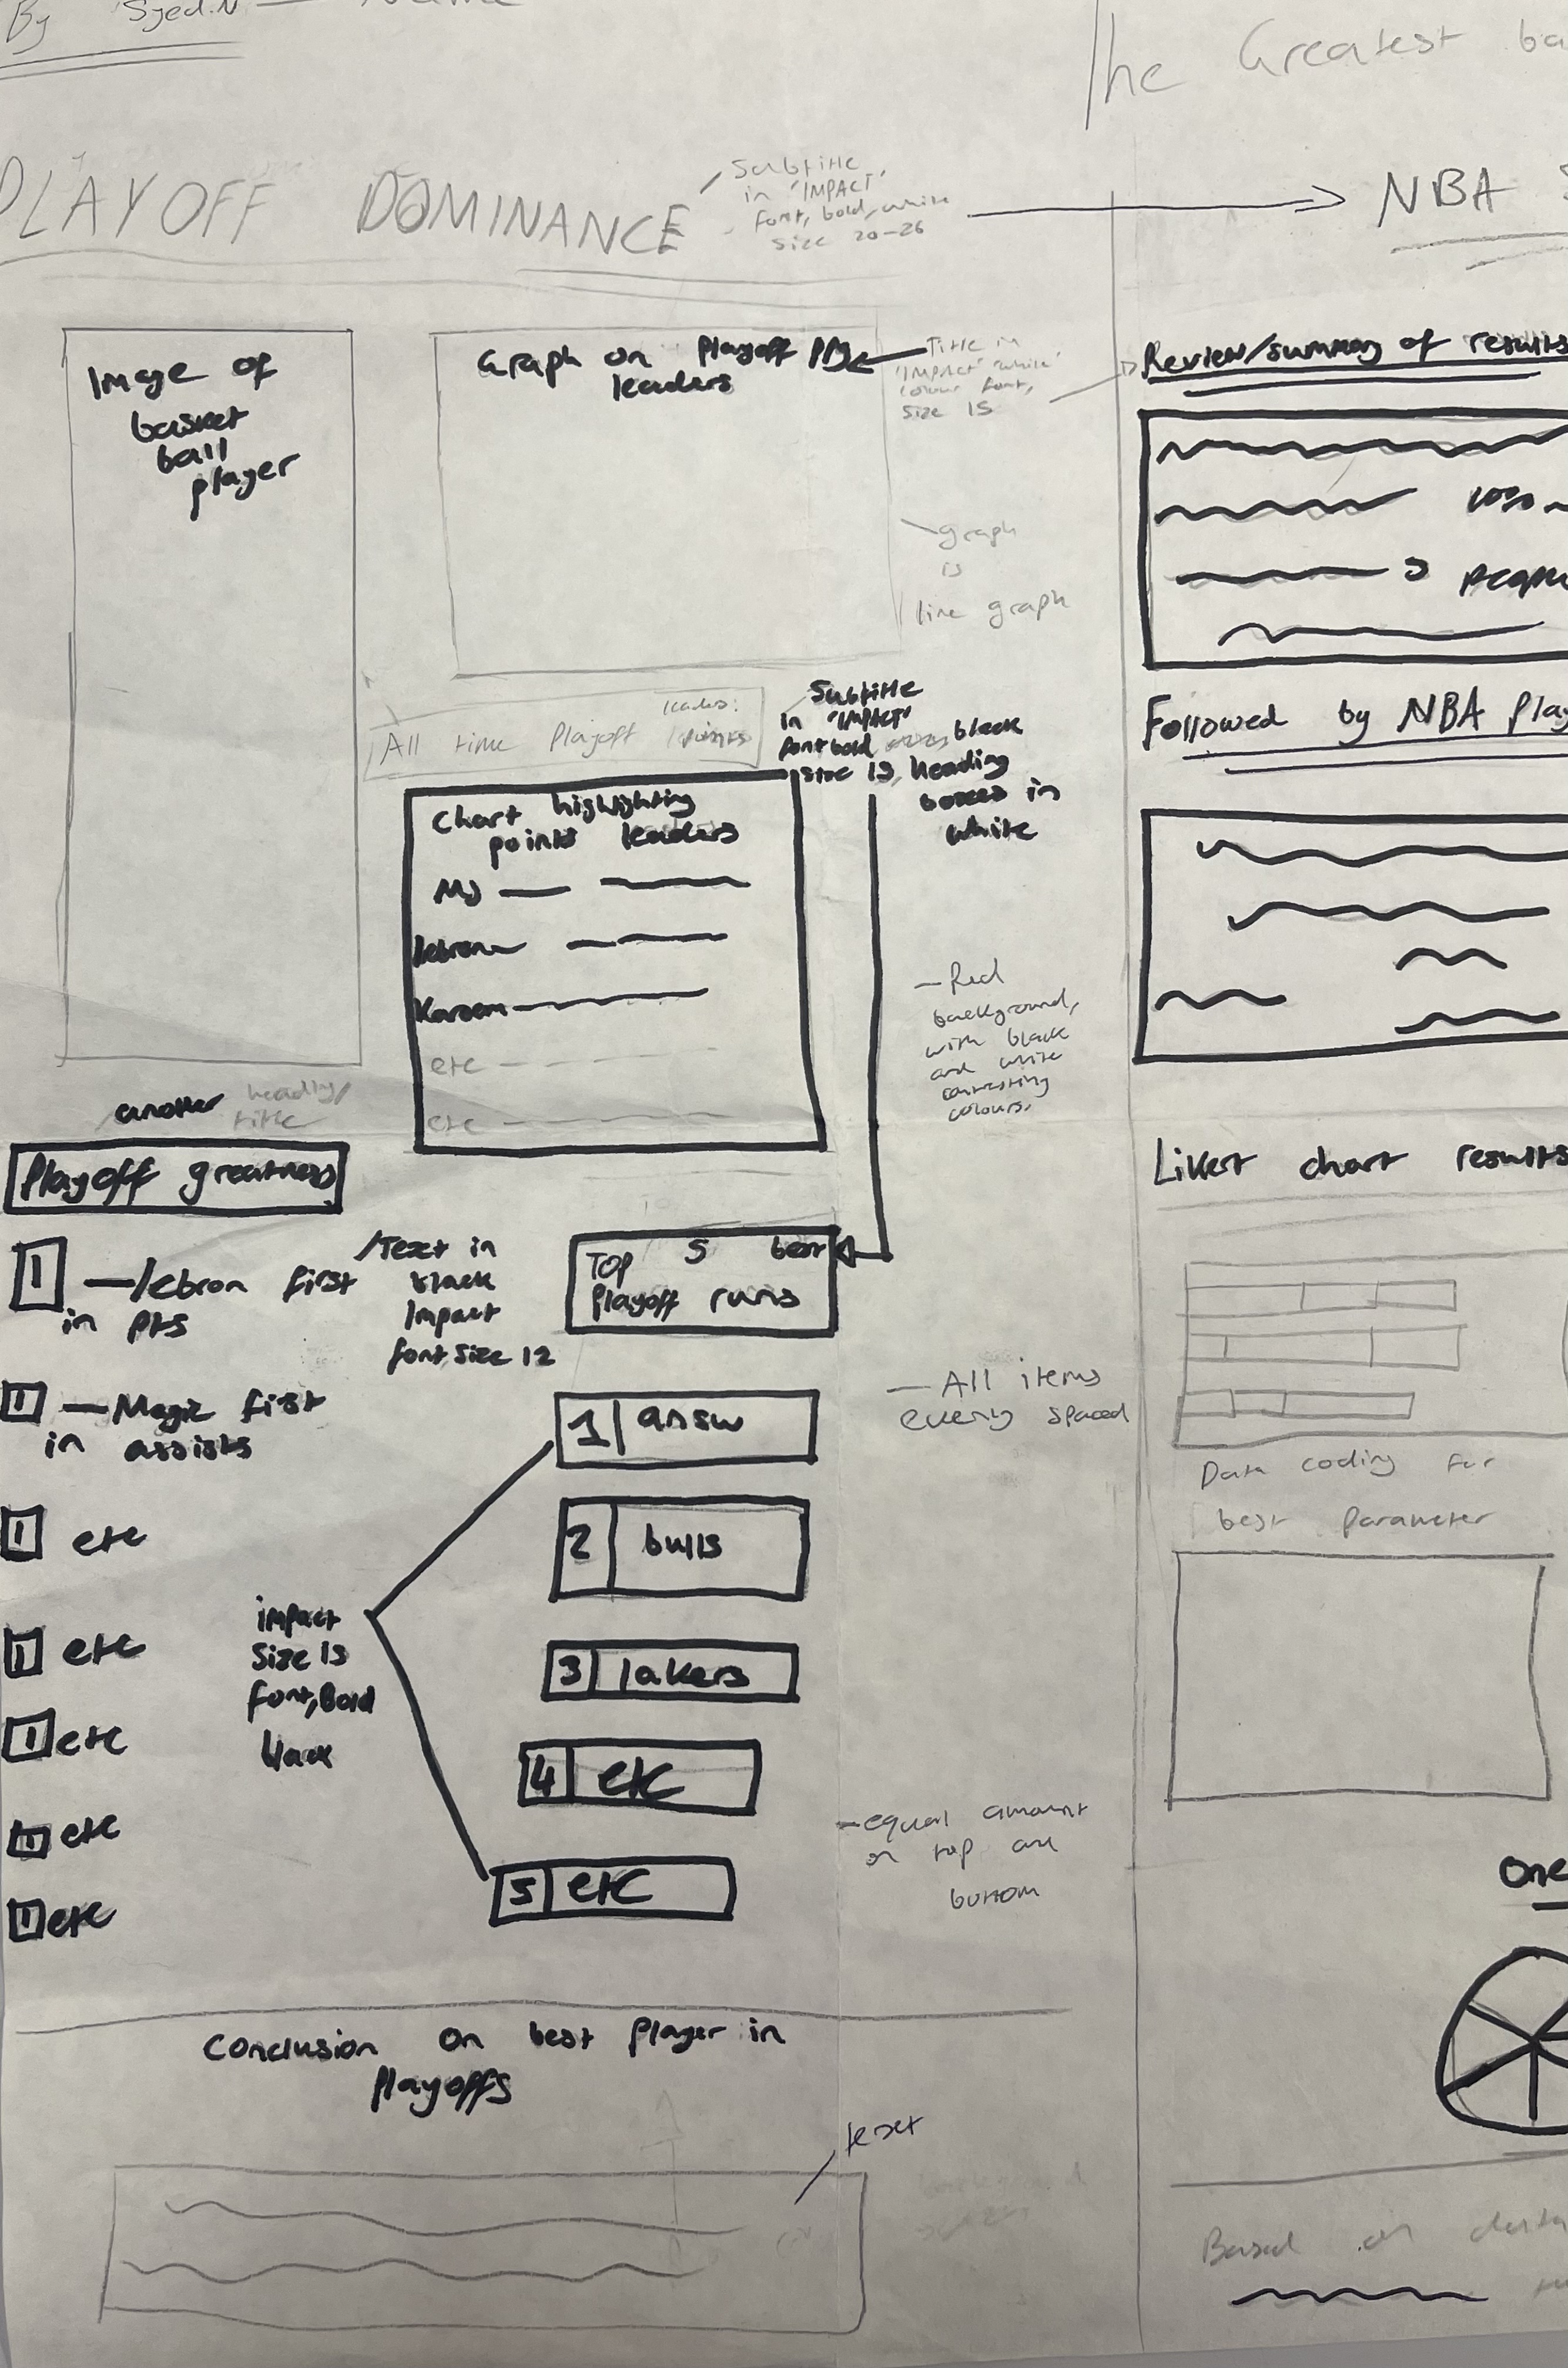 By Syed.N — Name
The Greatest ba
PLAYOFF DOMINANCE
Subtitle
in 'IMPACT'
font, bold, white
size 20-26
NBA S
Image of
basket
ball
player
Graph on playoff PPG
leaders
Title in
'IMPACT' 'white'
colour font,
size 15
graph
is
line graph
All time Playoff leaders:
points
Subtitle
in 'IMPACT'
font bold black
size 15, heading
boxed in
white
Chart highlighting
points leaders
MJ
lebron
Kareem
etc
etc
- Red
background,
with black
and white
contrasting
colours.
another heading/
title
Playoff greatness
1 - lebron first
in pts
/Text in
black
Impact
font, size 12
1 - Magic first
in assists
1 etc
1 etc
1 etc
1 etc
1 etc
Top 5 best
Playoff runs
1 answ
2 bulls
3 lakers
4 etc
5 etc
impact
size 15
font, Bold
black
- All items
evenly spaced
- equal amount
on top and
bottom
Conclusion on best player in
playoffs
text
Review/summary of results
people
Followed by NBA play
Likert chart results
Data coding for
best parameter
One
Based on data